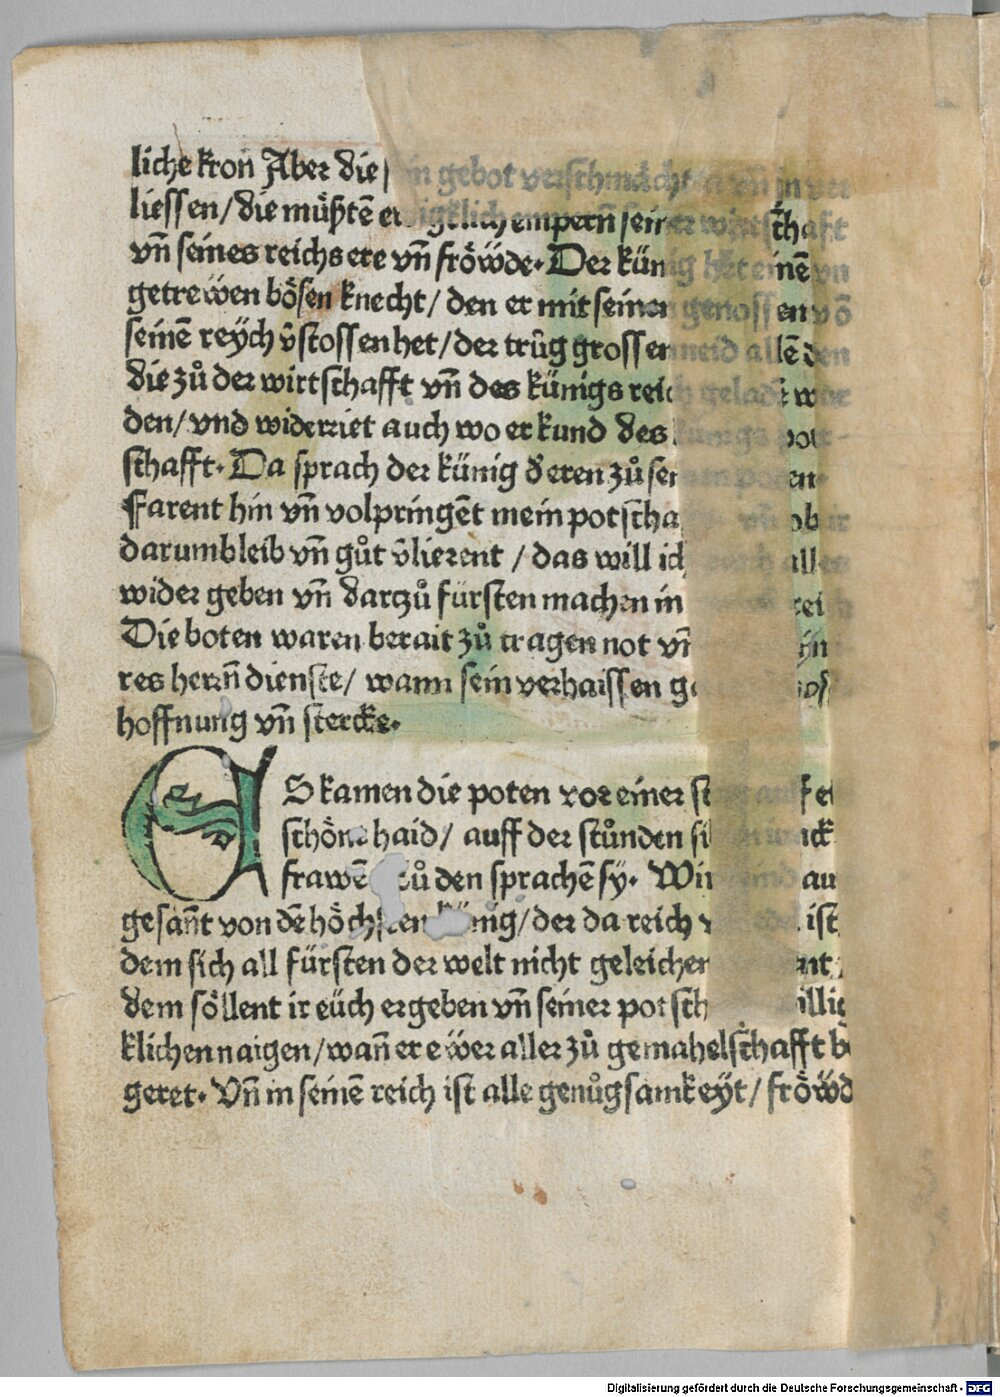 liche kron Aber die sein gebot verschmächten vñ in ver
liessen/die müßtē ewigklich empern seiner wirtschafft
vñ seines reichs ere vñ fröẅde· Der künig het einē vn
getrewen bösen knecht/ den er mit seinen genossen vō
seinē reÿch v̄stossen het/der trůg grossen neid allē den
die zů der wirtschafft vñ des künigs reich geladē wor
den/vnd widerriet auch wo er kund des künigs pot-
schafft· Da sprach der künig d̄eren zů seinen poten·
Farent hin vñ volpringēt mein potscha vñ ob ir
darumb leib vñ gůt v̄lierent / das will ich euch alles
wider geben vñ darzů fürsten machen in reich
Die boten waren berait zů tragen not vñ
res herrn̄ dienste/ wann sein verhaissen
hoffnung vñ stercke·
ES kamen die poten vor einer auff
schönē haid/ auff der stůnden
frawē zů den sprachē sy· Wir seind auß
gesant von dē höchsten künig/der da reich ist
dem sich all fürsten der welt nicht geleichen
dem söllent ir eüch ergeben vñ seiner potsch willic
klichen naigen/wañ er eẅer aller zů gemahelschafft be
geret· Vñ in seinē reich ist alle genůgsamkeÿt/ fröẅd
Digitalisierung gefördert durch die Deutsche Forschungsgemeinschaft - DFG